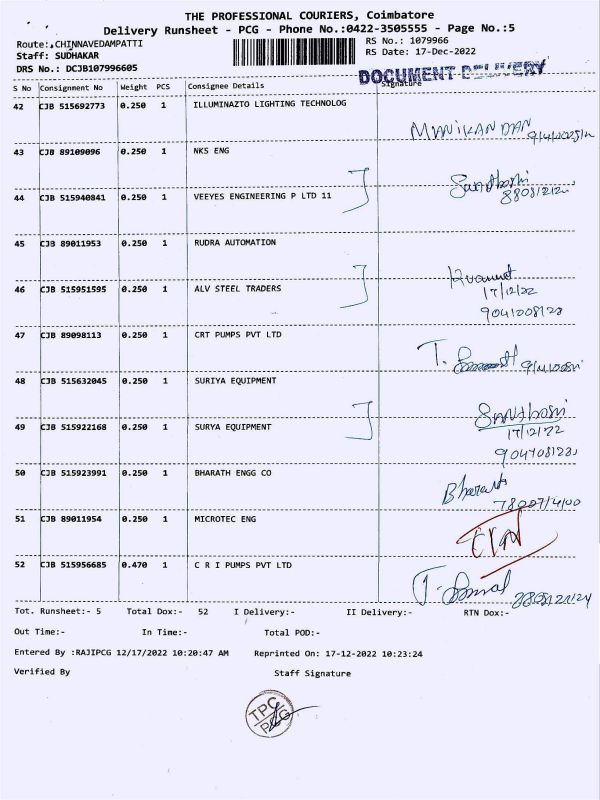 THE PROFESSIONAL COURIERS, Coimbatore
Delivery Runsheet - PCG - Phone No.:0422-3505555 - Page No.:5
Route: CHINNAVEDAMPATTI RS No.: 1079966
Staff: SUDHAKAR RS Date: 17-Dec-2022
DRS No.: DCJB107996605
DOCUMENT DELIVERY
S No Consignment No Weight PCS Consignee Details Signature
42 CJB 515692773 0.250 1 ILLUMINAZTO LIGHTING TECHNOLOG
MANIKANDAN
43 CJB 89109096 0.250 1 NKS ENG
Santhoshi
44 CJB 515940841 0.250 1 VEEYES ENGINEERING P LTD 11
45 CJB 89011953 0.250 1 RUDRA AUTOMATION
46 CJB 515951595 0.250 1 ALV STEEL TRADERS
17/12/22
47 CJB 89098113 0.250 1 CRT PUMPS PVT LTD
T.
48 CJB 515632045 0.250 1 SURIYA EQUIPMENT
Santhoshi
49 CJB 515922168 0.250 1 SURYA EQUIPMENT
17/12/22
50 CJB 515923991 0.250 1 BHARATH ENGG CO
Bharath
51 CJB 89011954 0.250 1 MICROTEC ENG
52 CJB 515956685 0.470 1 C R I PUMPS PVT LTD
Tot. Runsheet:- 5 Total Dox:- 52 I Delivery:- II Delivery:- RTN Dox:-
Out Time:- In Time:- Total POD:-
Entered By :RAJIPCG 12/17/2022 10:20:47 AM Reprinted On: 17-12-2022 10:23:24
Verified By Staff Signature
TPC
PCG